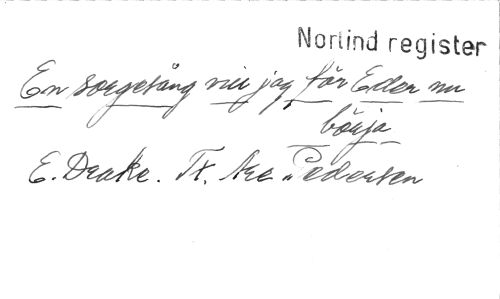 Norlind register
En sorgesång vill jag för Eder nu
börja
E. Drake. Tr. Are Pedersen